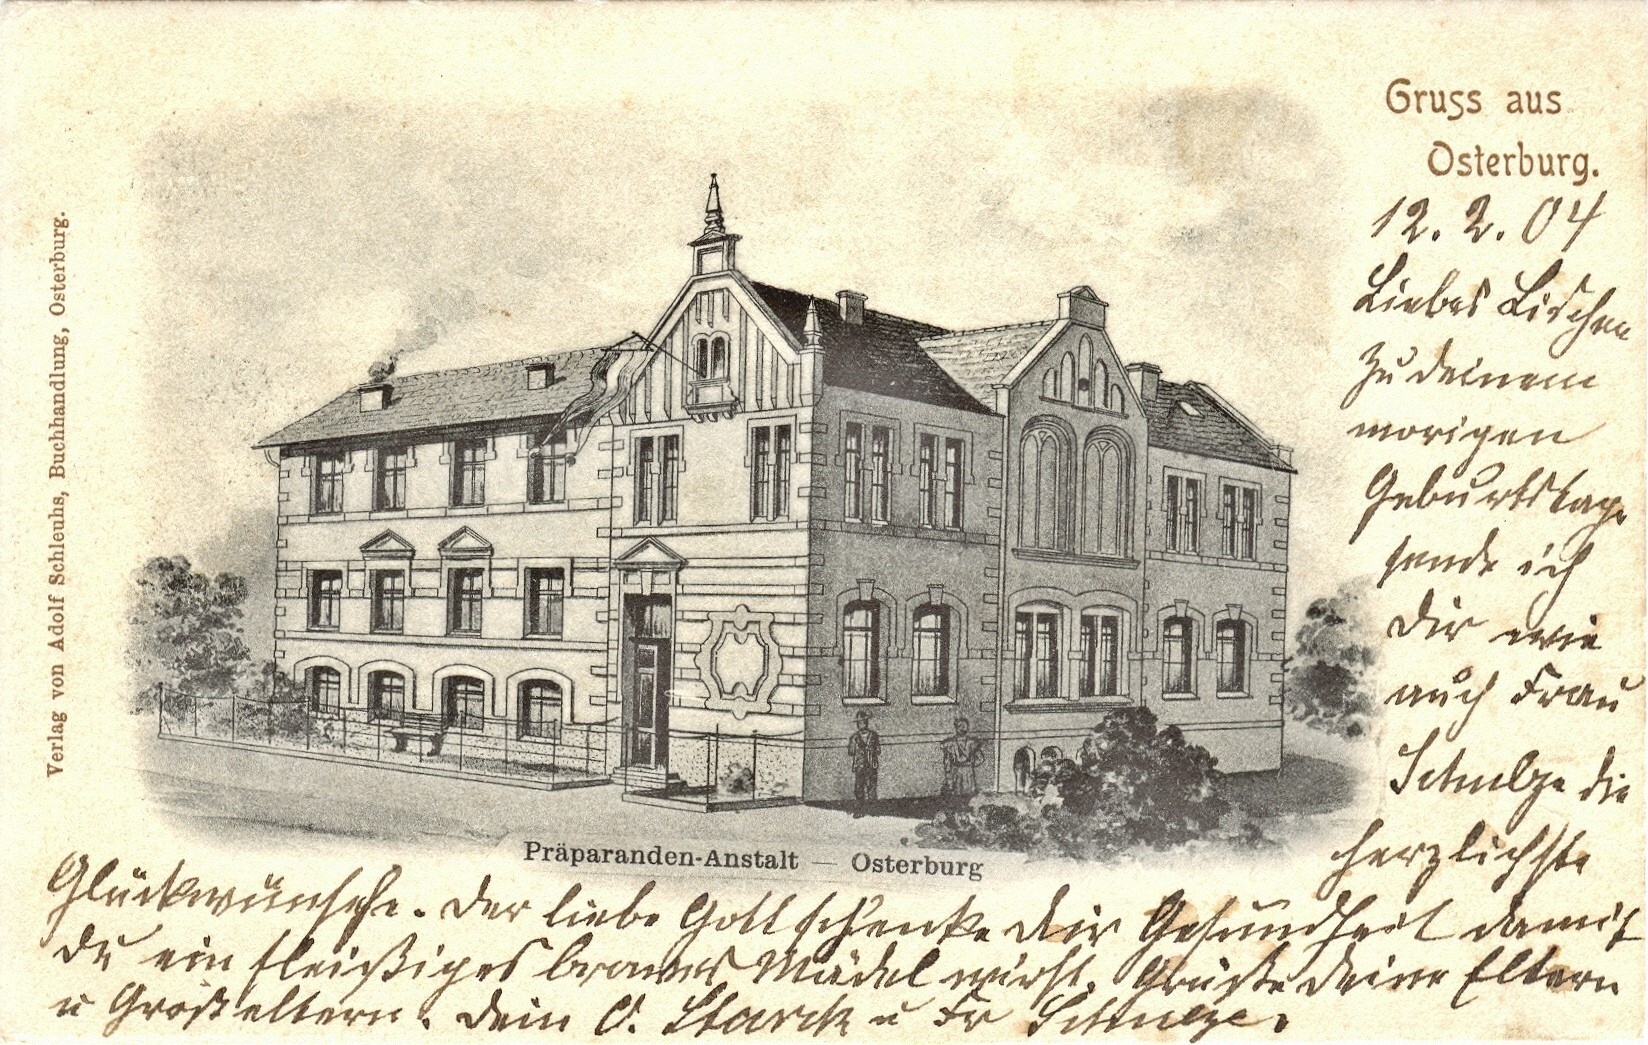 Verlag von Adolf Schleuhs, Buchhandlung, Osterburg.
Gruss aus
Osterburg.
12. 2. 04
Liebes Lischen
Zu deinem
morigen
Geburtstage
sende ich
dir wie
auch Frau
Schulze die
herzlichste
Präparanden-Anstalt — Osterburg
Glückwünsche. Der liebe Gott schenke dir Gesundheit damit
du ein fleißiges braves Mädel wirst. Grüße deine Eltern
u Großeltern. Dein O. Starck u Fr Schulze.